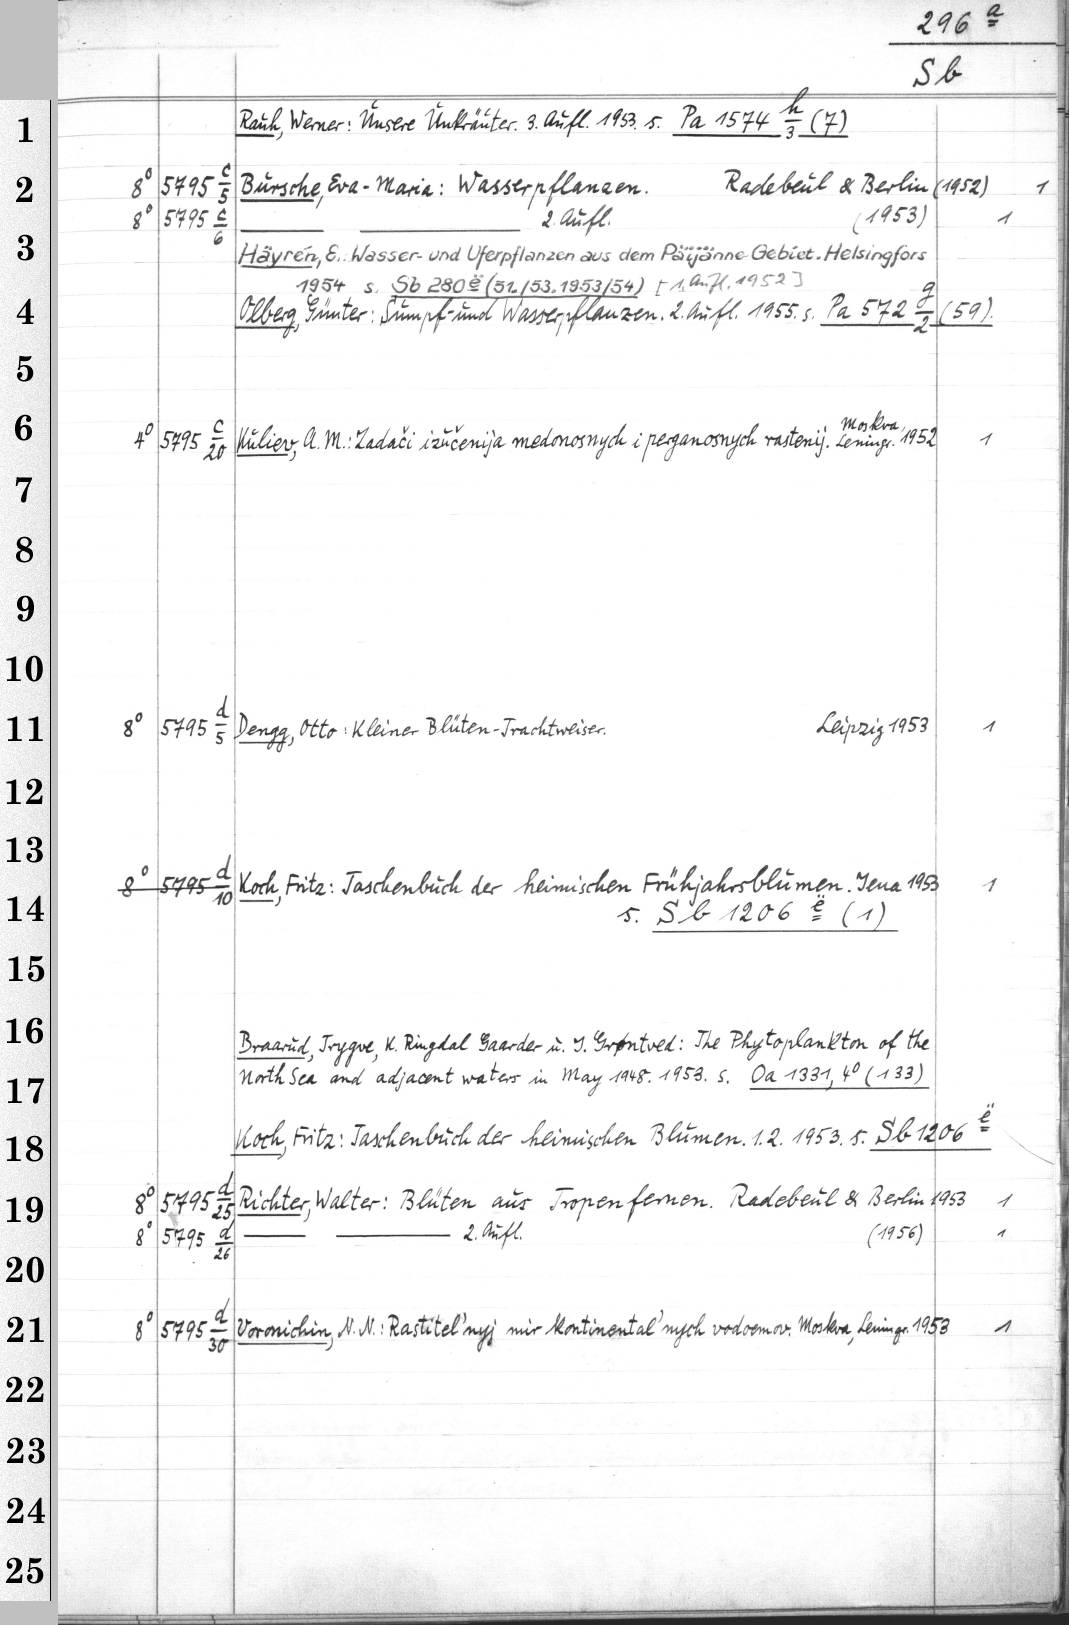 296 a
Sb
1 Rauh, Werner: Unsere Unkräuter. 3. Aufl. 1953. s. Pa 1574 h/3 (7)
2 8° 5795 c/5 Bursche, Eva-Maria: Wasserpflanzen. Radebeul & Berlin (1952) 1
8° 5795 c/6 2. Aufl. (1953) 1
3 Häyrén, E.: Wasser- und Uferpflanzen aus dem Päijänne-Gebiet. Helsingfors
1954 s. Sb 280 ë (51./53.1953/54) [1. Aufl. 1952]
4 Olberg, Günter: Sumpf- und Wasserpflanzen. 2. Aufl. 1955. s. Pa 572 g/2 (59).
5
6 4° 5795 c/20 Kuliev, A. M.: Zadači izučenija medonosnych i perganosnych rastenij. Moskva, Leningr. 1952 1
7
8
9
10
11 8° 5795 d/5 Dengg, Otto: Kleiner Blüten-Trachtweiser. Leipzig 1953 1
12
13
8° 5795 d/10 Koch, Fritz: Taschenbuch der heimischen Frühjahrsblumen. Jena 1953 1
14 s. Sb 1206 ë (1)
15
16 Braarud, Trygve, K. Ringdal Gaarder u. J. Grøntved: The Phytoplankton of the
17 North Sea and adjacent waters in May 1948. 1953. s. Oa 1331, 4° (133)
18 Koch, Fritz: Taschenbuch der heimischen Blumen. 1.2. 1953. s. Sb 1206 ë
19 8° 5795 d/25 Richter, Walter: Blüten aus Tropenfernen. Radebeul & Berlin 1953 1
8° 5795 d/26 2. Aufl. (1956) 1
20
21 8° 5795 d/30 Voronichin, N. N.: Rastitel'nyj mir kontinental'nych vodoemov. Moskva, Leningr. 1953 1
22
23
24
25